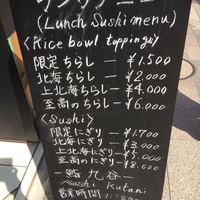 ランチメニュー
(Lunch Sushi menu)
〈Rice bowl toppings〉
限定ちらし — ¥1.500
北海ちらし — ¥2.000
上北海ちらし — ¥4.000
至高のちらし — ¥6.000
〈Sushi〉
限定にぎり — ¥1.700
北海にぎり — ¥3.000
上北海にぎり — ¥5.000
至高のにぎり — ¥8.000
— 鮨 九谷 —
Sushi Kutani
営業時間